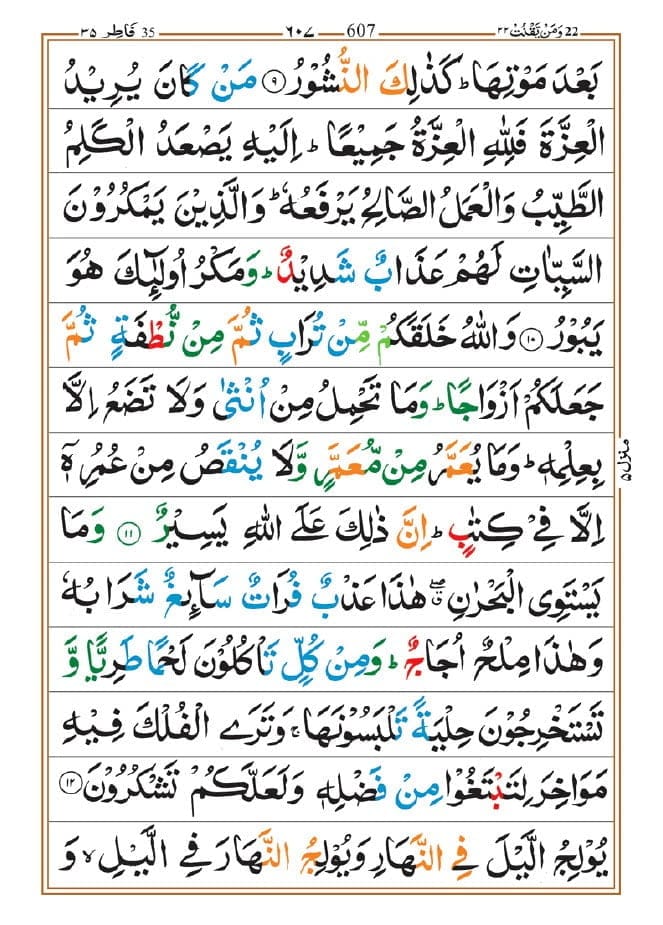 22 وَمَنْ يَّقْنُتْ ٢٢ 607 ٦٠٧ 35 فَاطِر ٣٥
بَعْدَ مَوْتِهَا ؕ كَذٰلِكَ النُّشُوْرُ ۹ مَنْ كَانَ يُرِيْدُ
الْعِزَّةَ فَلِلّٰهِ الْعِزَّةُ جَمِيْعًا ؕ اِلَيْهِ يَصْعَدُ الْكَلِمُ
الطَّيِّبُ وَالْعَمَلُ الصَّالِحُ يَرْفَعُهٗ ؕ وَالَّذِيْنَ يَمْكُرُوْنَ
السَّيِّاٰتِ لَهُمْ عَذَابٌ شَدِيْدٌ ؕ وَمَكْرُ اُولٰٓئِكَ هُوَ
يَبُوْرُ ۱۰ وَاللّٰهُ خَلَقَكُمْ مِّنْ تُرَابٍ ثُمَّ مِنْ نُّطْفَةٍ ثُمَّ
جَعَلَكُمْ اَزْوَاجًا ؕ وَمَا تَحْمِلُ مِنْ اُنْثٰى وَلَا تَضَعُ اِلَّا
بِعِلْمِهٖ ؕ وَمَا يُعَمَّرُ مِنْ مُّعَمَّرٍ وَّلَا يُنْقَصُ مِنْ عُمُرِهٖۤ
اِلَّا فِيْ كِتٰبٍ ؕ اِنَّ ذٰلِكَ عَلَى اللّٰهِ يَسِيْرٌ ۱۱ وَمَا
يَسْتَوِى الْبَحْرٰنِ ۖ هٰذَا عَذْبٌ فُرَاتٌ سَآئِغٌ شَرَابُهٗ
وَهٰذَا مِلْحٌ اُجَاجٌ ؕ وَمِنْ كُلٍّ تَاْكُلُوْنَ لَحْمًا طَرِيًّا وَّ
تَسْتَخْرِجُوْنَ حِلْيَةً تَلْبَسُوْنَهَا ۚ وَتَرَى الْفُلْكَ فِيْهِ
مَوَاخِرَ لِتَبْتَغُوْا مِنْ فَضْلِهٖ وَلَعَلَّكُمْ تَشْكُرُوْنَ ۱۲
يُوْلِجُ الَّيْلَ فِى النَّهَارِ وَيُوْلِجُ النَّهَارَ فِى الَّيْلِ ۙ وَ
منزل ۵